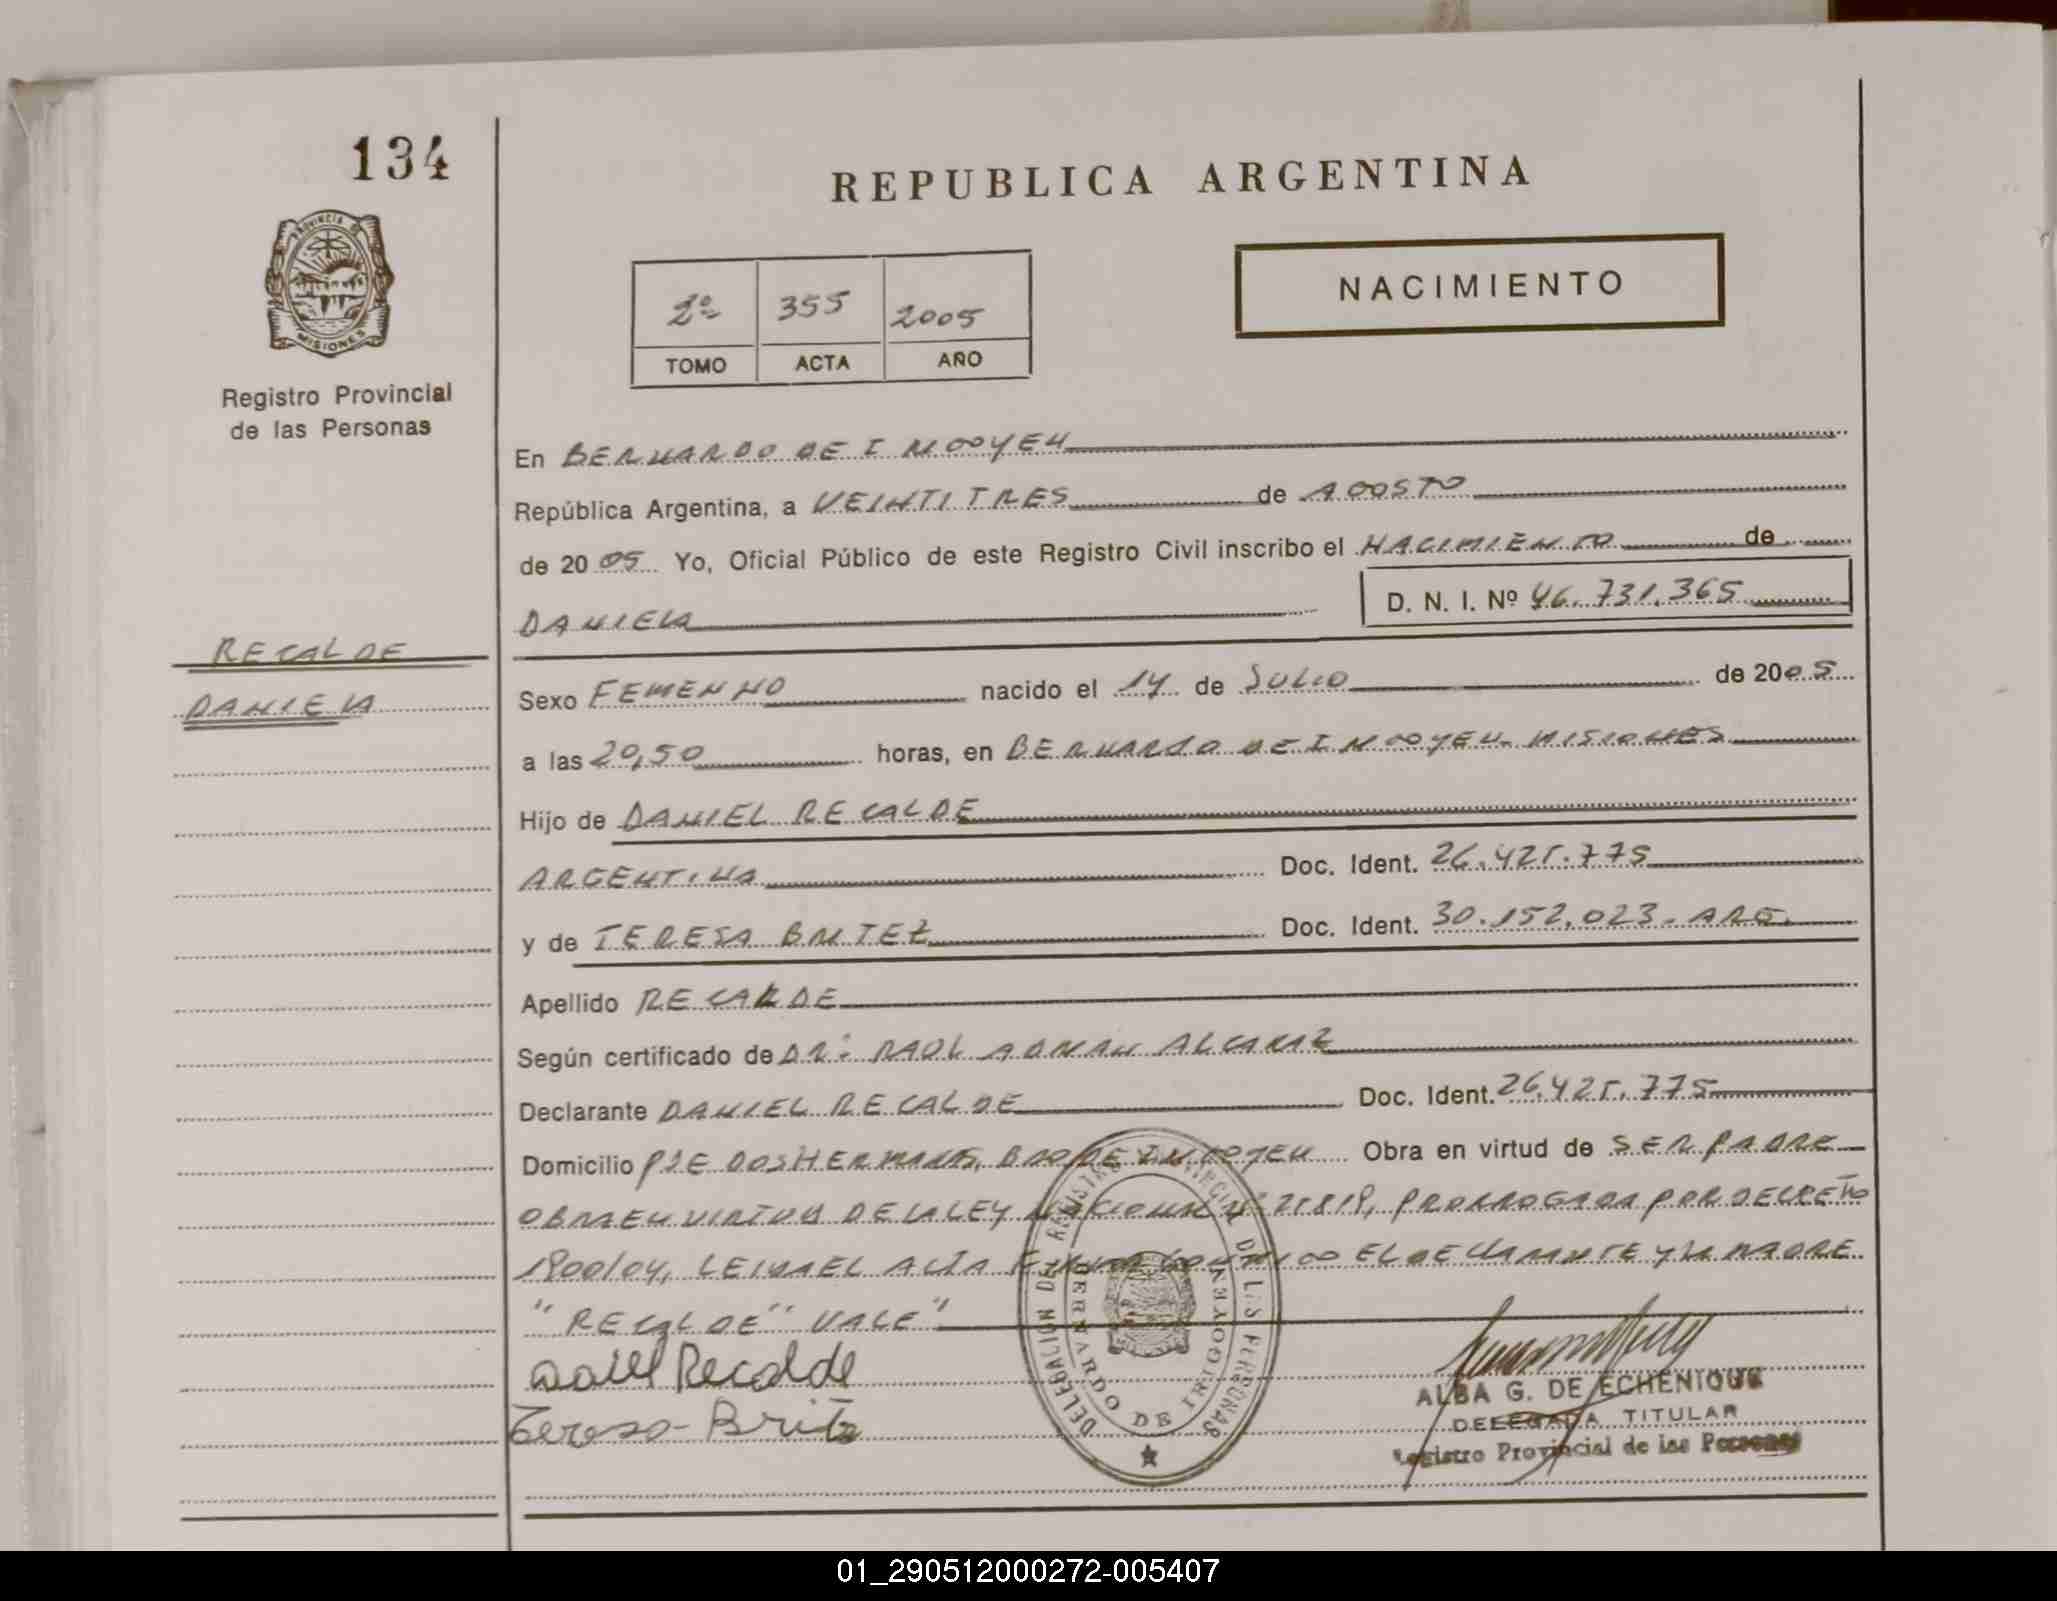 134
PROVINCIA DE
MISIONES
Registro Provincial
de las Personas
REPUBLICA ARGENTINA
2º 355 2005
TOMO ACTA AÑO
NACIMIENTO
En BERNARDO DE IRIGOYEN
República Argentina, a VEINTITRES de AGOSTO
de 2005 Yo, Oficial Público de este Registro Civil inscribo el NACIMIENTO de
DANIELA D. N. I. Nº 46.731.365
RECALDE
DANIELA
Sexo FEMENINO nacido el 14 de JULIO de 2005
a las 20,50 horas, en BERNARDO DE IRIGOYEN MISIONES
Hijo de DANIEL RECALDE
ARGENTINA Doc. Ident. 26.425.775
y de TERESA BRITEZ Doc. Ident. 30.152.023 - ARG.
Apellido RECALDE
Según certificado de DR: RAUL ADRIAN ALCARAZ
Declarante DANIEL RECALDE Doc. Ident. 26.425.775
Domicilio PJE DOS HERMANAS, BDO DE IRIGOYEN Obra en virtud de SER PADRE
OBRA EN VIRTUD DE LA LEY NACIONAL Nº 25819, PRORROGADA POR DECRETO
1800/04, LEIDA EL ACTA FIRMAN CONMIGO EL DECLARANTE Y LA MADRE
"RECALDE" VALE"
Daniel Recalde
Teresa - Britez
DELEGACION DEL REGISTRO PROVINCIAL DE LAS PERSONAS
BERNARDO DE IRIGOYEN
ALBA G. DE ECHENIQUE
DELEGADA TITULAR
Registro Provincial de las Personas
01_290512000272-005407